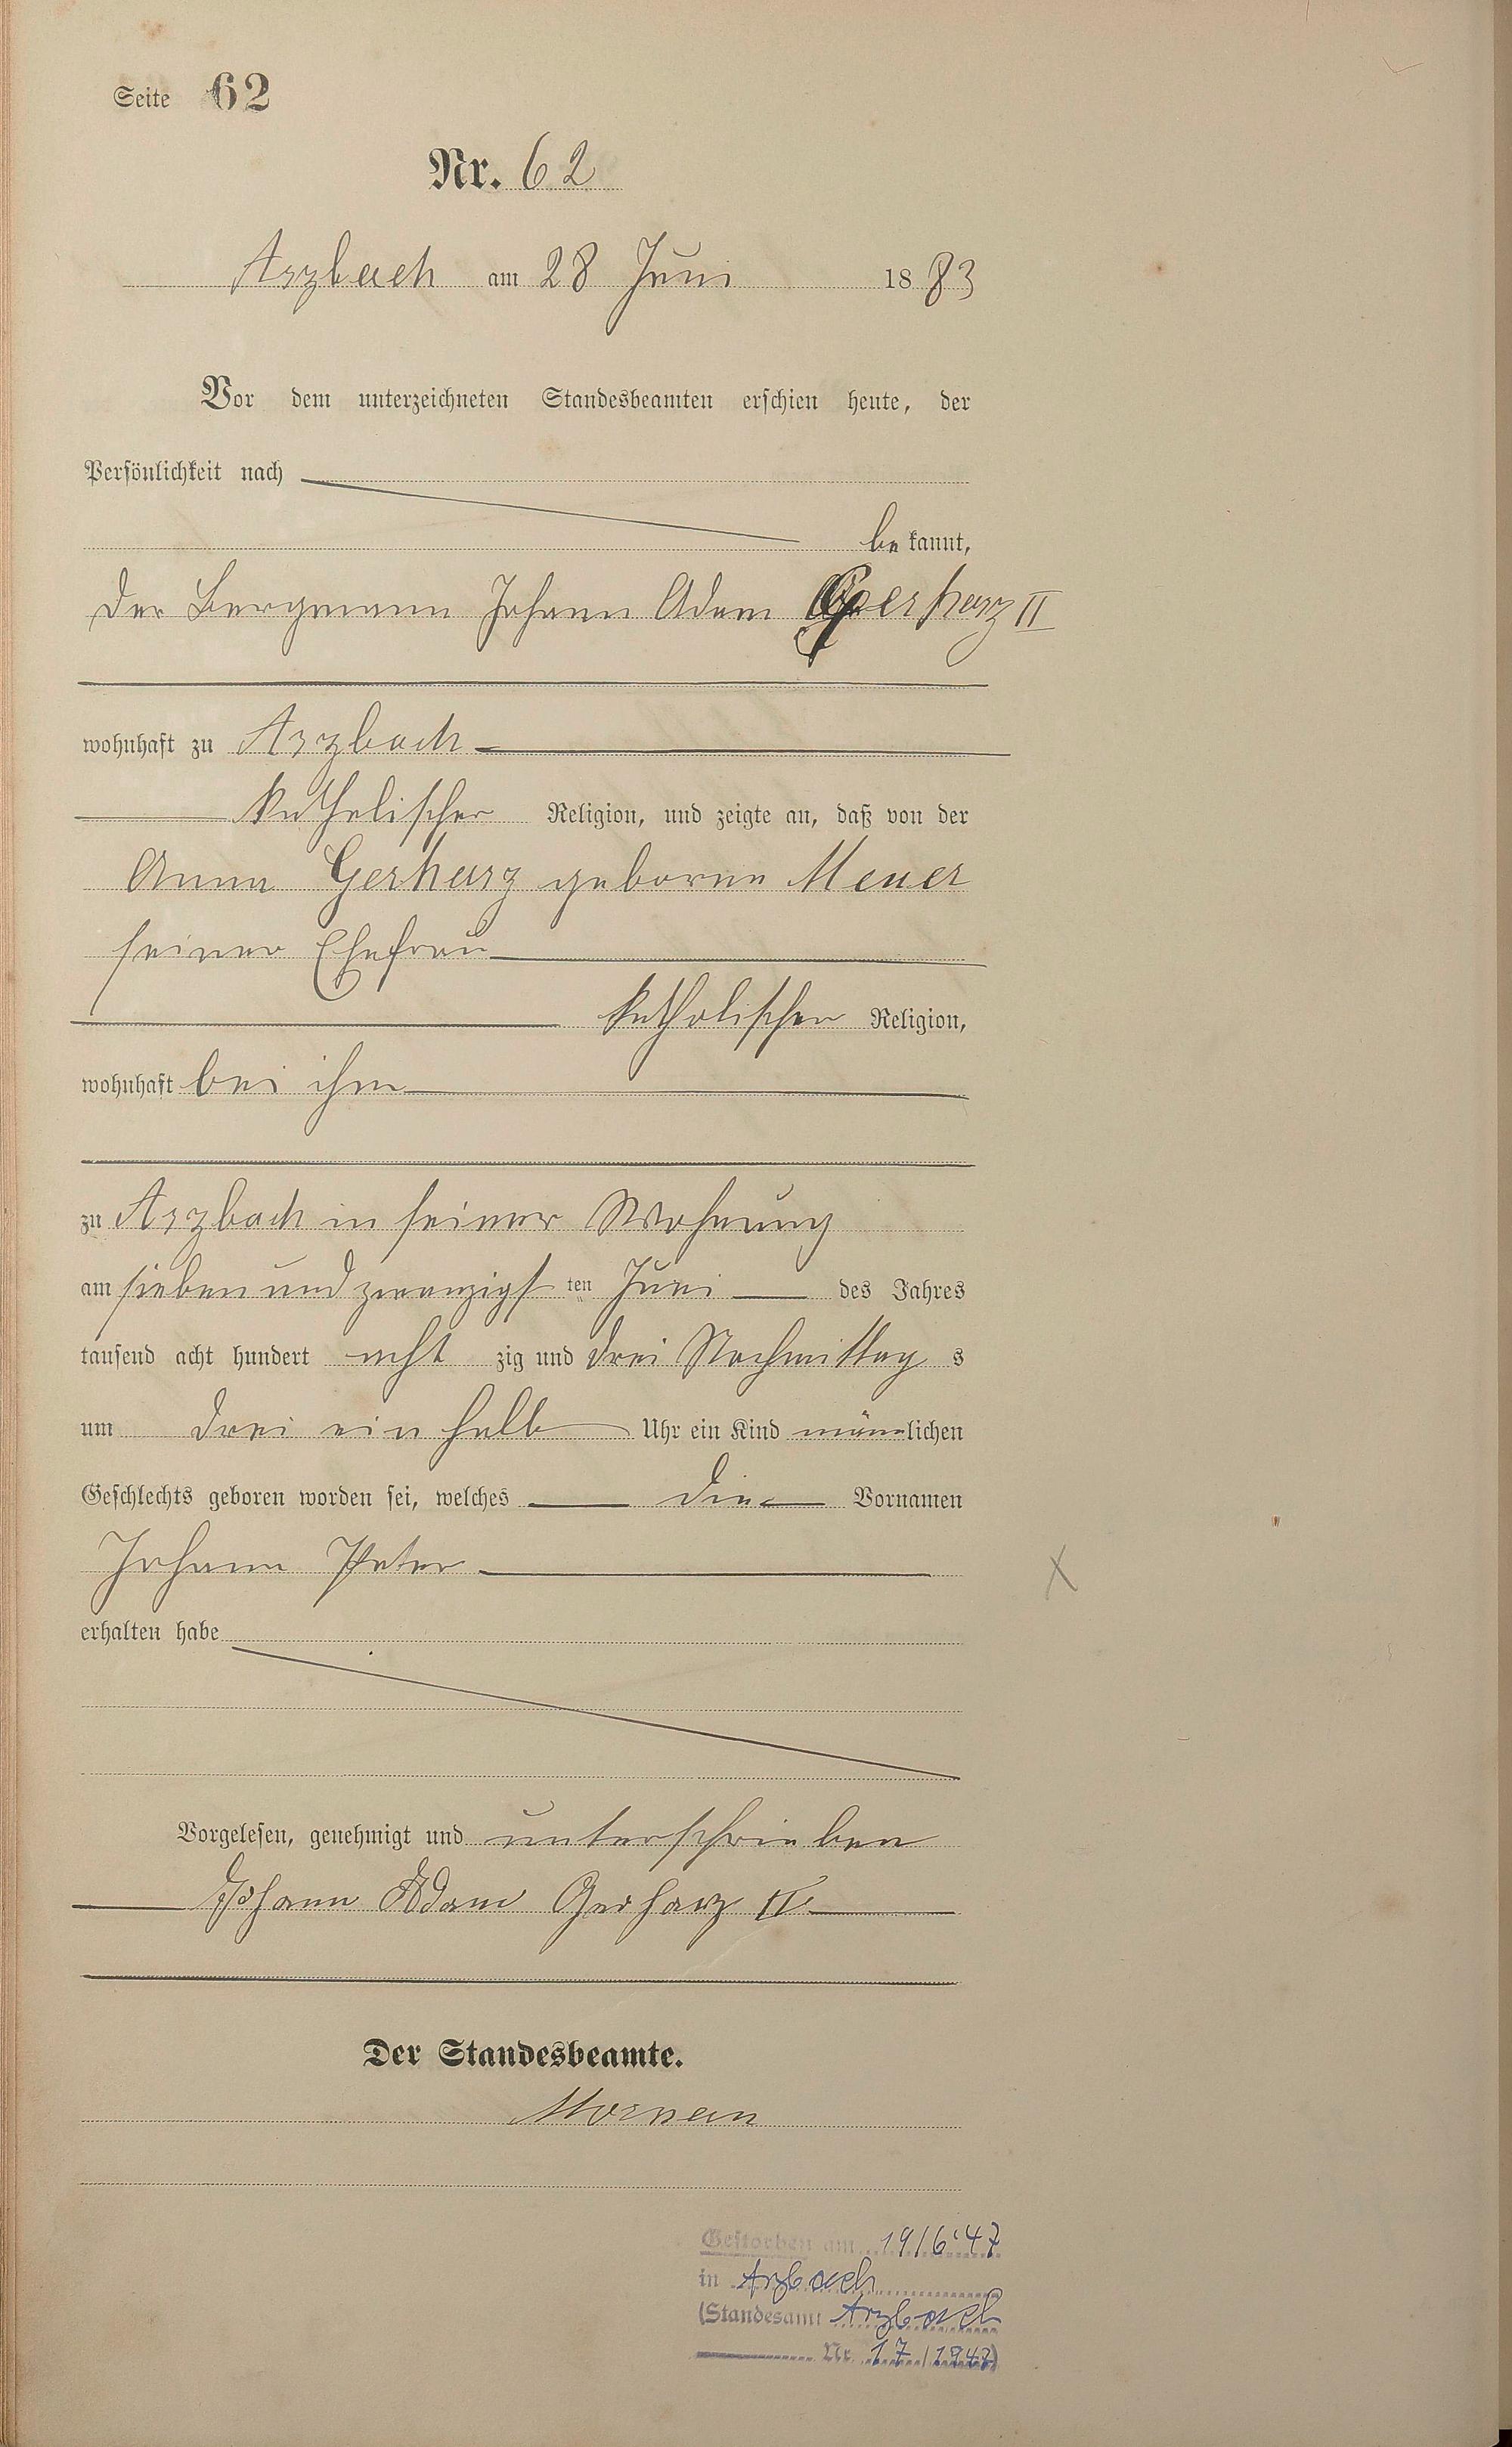 Seite 62
Nr. 62
Arzbach am 28 Juni 1883
Vor dem unterzeichneten Standesbeamten erschien heute, der
Persönlichkeit nach
be kannt,
der Bergmann Johann Adam Gerharz II
wohnhaft zu Arzbach
katholischer Religion, und zeigte an, daß von der
Anna Gerharz geborne Meuer
seiner Ehefrau
katholischer Religion,
wohnhaft bei ihm
zu Arzbach in seiner Wohnung
am sieben und zwanzigsten Juni des Jahres
tausend acht hundert acht zig und drei Nachmittag s
um drei ein halb Uhr ein Kind männlichen
Geschlechts geboren worden sei, welches die Vornamen
Johann Peter
erhalten habe
Vorgelesen, genehmigt und unterschrieben
Johann Adam Gerharz II.
Der Standesbeamte.
Gestorben am 19/6.47
in Arzbach
(Standesamt Arzbach
Nr. 17/1947)